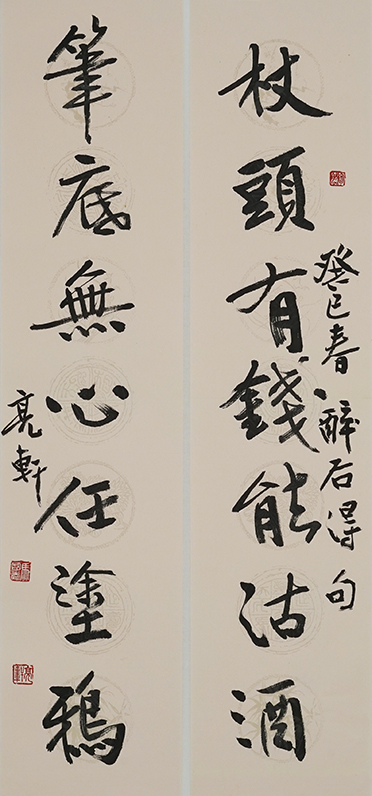 杖頭有錢能沽酒
癸巳春 醉石得句
筆底無心任塗鴉
亮軒